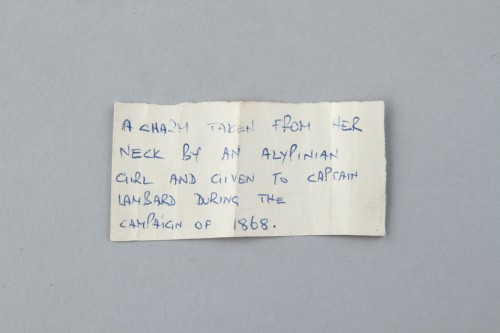 A CHARM TAKEN FROM HER
NECK BY AN ALYPINIAN
GIRL AND GIVEN TO CAPTAIN
LAMBARD DURING THE
CAMPAIGN OF 1868.